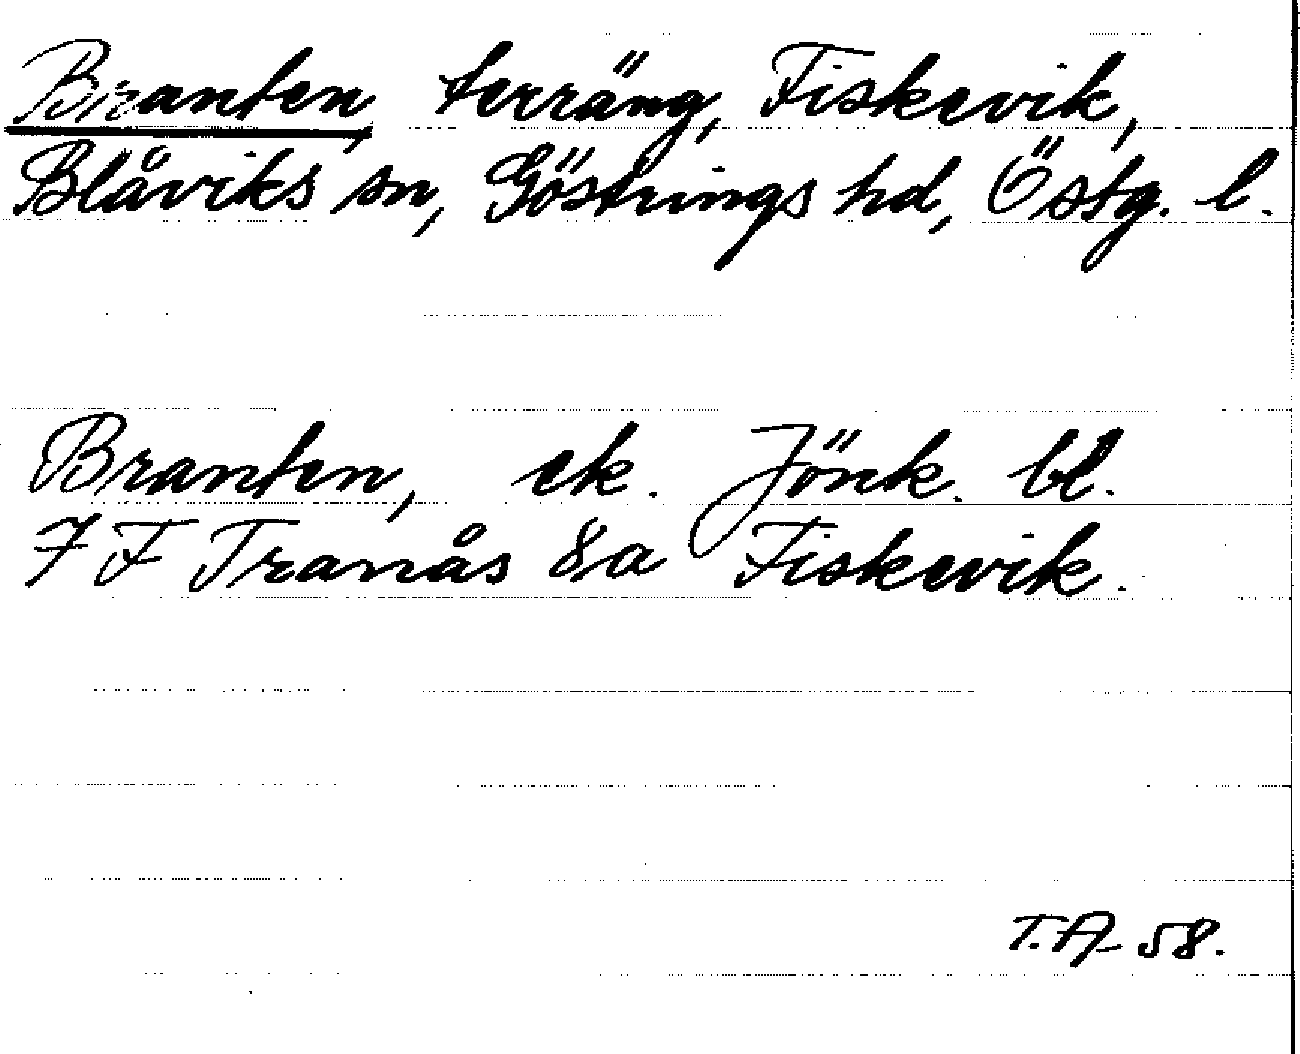 Branten, terräng, Fiskevik,
Blåviks sn, Göstrings hd, Östg. l.
Branten, ek. Jönk. bl.
7 F Tranås 8a Fiskevik.
T.A 58.